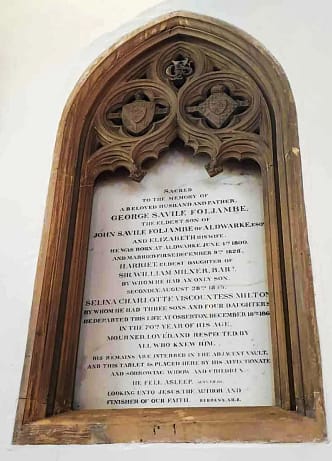 SACRED
TO THE MEMORY OF
A BELOVED HUSBAND AND FATHER,
GEORGE SAVILE FOLJAMBE,
THE ELDEST SON OF
JOHN SAVILE FOLJAMBE OF ALDWARKE, ESQR
AND ELIZABETH HIS WIFE.
HE WAS BORN AT ALDWARKE JUNE 4TH 1800.
AND MARRIED FIRST, DECEMBER 9TH 1828.
HARRIET, ELDEST DAUGHTER OF
SIR WILLIAM MILNER, BART.
BY WHOM HE HAD AN ONLY SON.
SECONDLY, AUGUST 28TH 1845.
SELINA CHARLOTTE VISCOUNTESS MILTON
BY WHOM HE HAD THREE SONS AND FOUR DAUGHTERS
HE DEPARTED THIS LIFE AT OSBERTON, DECEMBER 18TH
IN THE 70TH YEAR OF HIS AGE,
MOURNED, LOVED AND RESPECTED BY
ALL WHO KNEW HIM.
HIS REMAINS ARE INTERRED IN THE ADJACENT VAULT,
AND THIS TABLET IS PLACED HERE BY HIS AFFECTIONATE
AND SORROWING WIDOW AND CHILDREN.
HE FELL ASLEEP. ACTS VII.60.
LOOKING UNTO JESUS THE AUTHOR AND
FINISHER OF OUR FAITH. HEBREWS, XII.2.